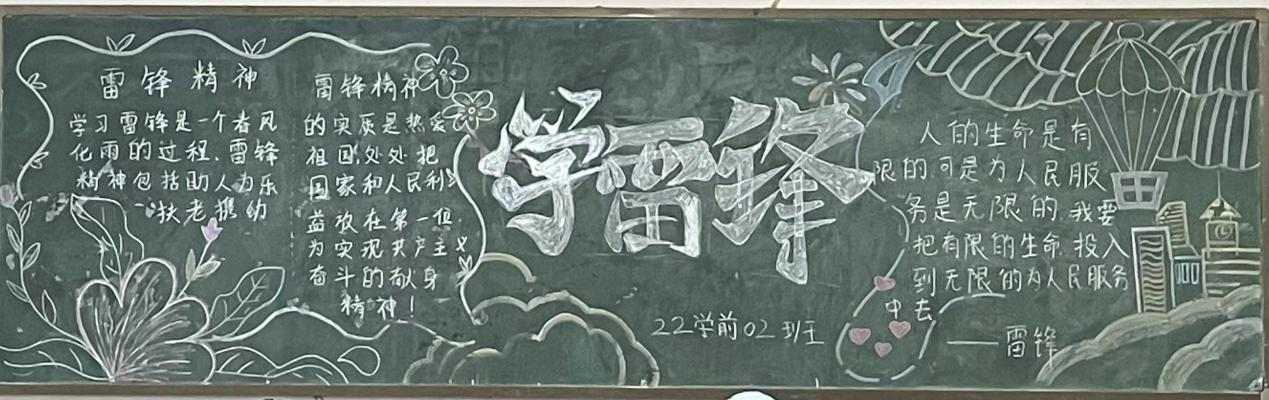 雷锋精神
学习雷锋是一个春风
化雨的过程.雷锋
精神包括助人为乐
扶老携幼
雷锋精神
的实质是热爱
祖国,处处把
国家和人民利
益放在第一位.
为实现共产主义
奋斗的献身
精神!
学雷锋
22学前02班
人的生命是有
限的.可是为人民服
务是无限的.我要
把有限的生命.投入
到无限的为人民服务
中去
——雷锋